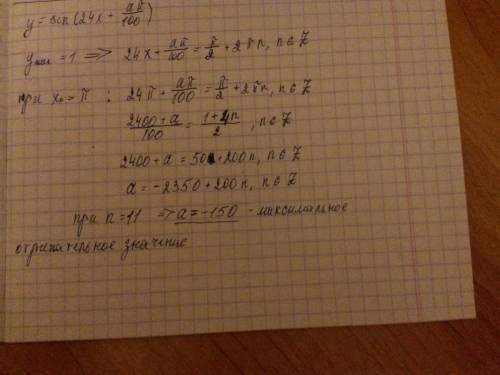 y = sin(24x + aπ/100)
yмах = 1 => 24x + aπ/100 = π/2 + 2πn, n∈Z
при x₀ = π : 24π + aπ/100 = π/2 + 2πn, n∈Z
(2400 + a)/100 = (1+4n)/2, n∈Z
2400 + a = 50 + 200n, n∈Z
a = -2350 + 200n, n∈Z
при n = 11 => a = -150 - максимальное
отрицательное значение